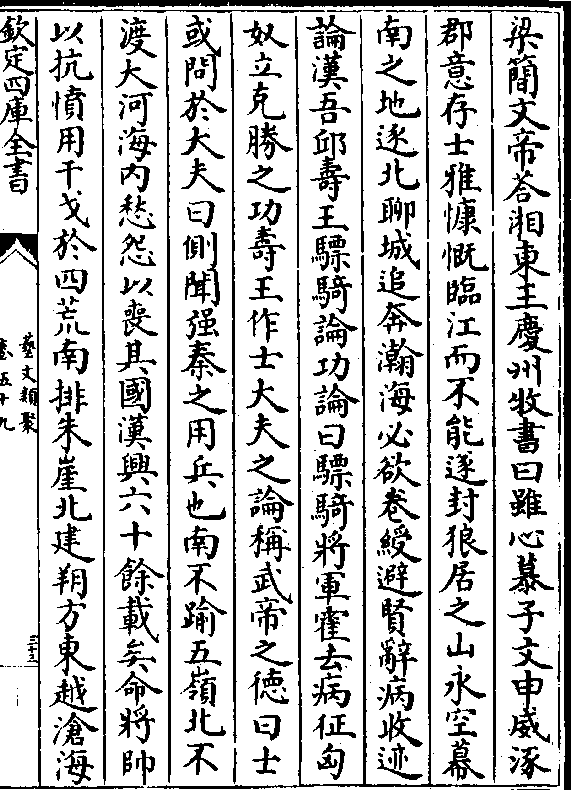 梁簡文帝荅湘東王慶州牧書曰雖心慕子文申威涿
郡意存士雅慷慨臨江而不能遂封狼居之山永空幕
南之地逐北聊城追奔瀚海必欲卷綬避賢辭病收迹
論漢吾邱壽王驃騎論功論曰驃騎將軍霍去病征匈
奴立克勝之功壽王作士大夫之論稱武帝之德曰士
或問於大夫曰側聞强秦之用兵也南不踰五嶺北不
渡大河海内愁怨以喪其國漢興六十餘載矣命將帥
以抗憤用干戈於四荒南排朱崖北建朔方東越滄海
欽定四庫全書
藝文類聚
卷五十九
三十三